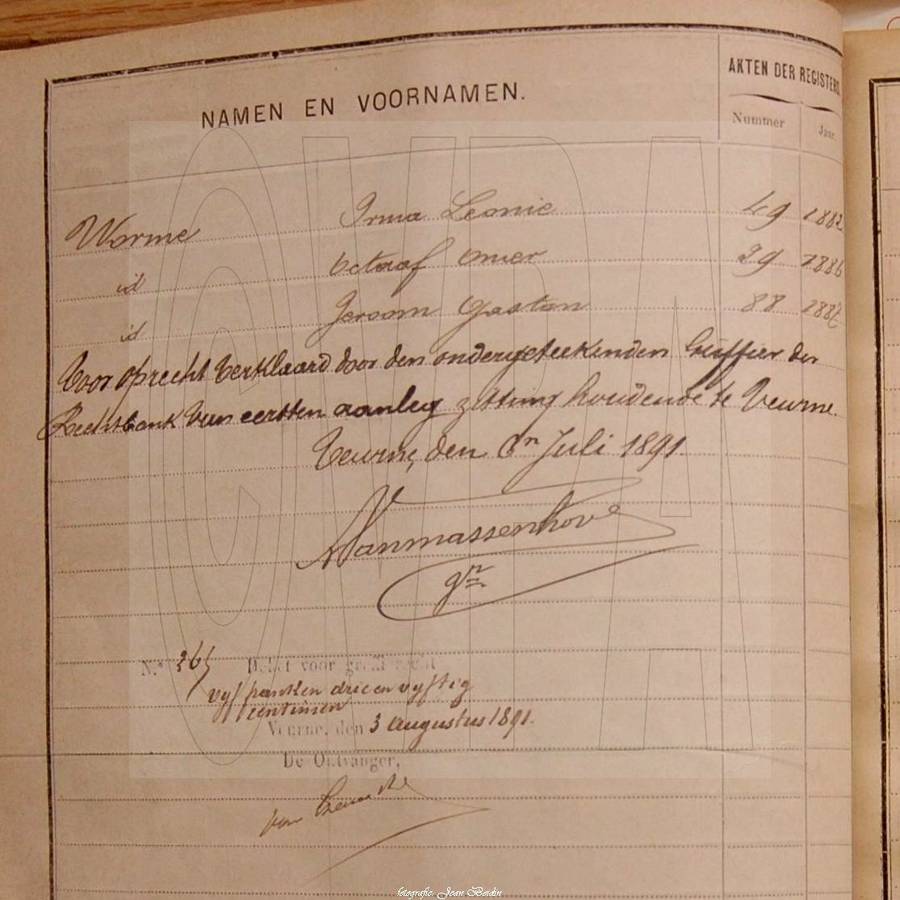 NAMEN EN VOORNAMEN.
AKTEN DER REGISTERS
Nummer
Jaar
Worme Irma Leonie 49 1882
id Octaaf Omer 29 1886
id Jeroom Gaston 88 188
Voor oprecht verklaard door den ondergeteekenden Griffier der
Rechtbank van eersten aanleg zitting houdende te Veurne.
Veurne, den 6n Juli 1891.
AVanmassenhove
gr
N.r 365 Debet voor greffierecht
vyf franken drie en vyftig
centimen
Veurne, den 3 Augustus 1891.
De Ontvanger,
van
fotografie: Joan Berdin